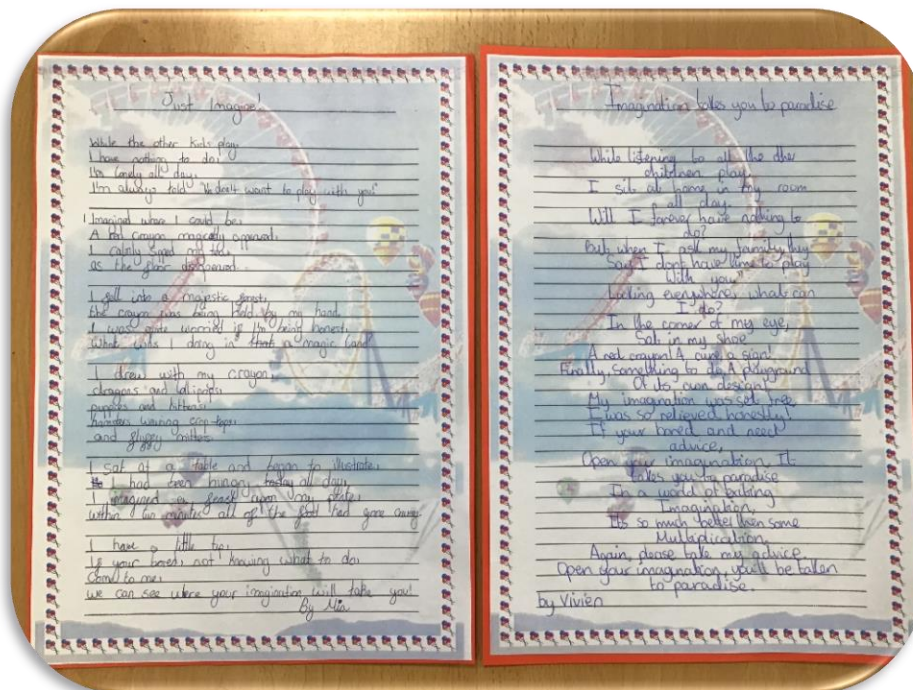 Just Imagine!
While the other kids play,
I have nothing to do,
I'm lonely all day,
I'm always told "I don't want to play with you!"
I imagined where I could be,
A red crayon magically appeared,
I calmly my
as the floor disappeared.
I fell into a majestic forest,
the crayon was being held by my hand.
I was quite worried if I'm being honest,
What was I doing in that a magic land
I drew with my crayon,
dragons and lollipops,
puppies and kittens,
hamsters wearing crop-tops,
and fluffy mittens.
I sat at a table and began to illustrate,
I had been hungry today all day,
I imagined a feast upon my plate,
within ten minutes all of the food had gone away
I have a little tip,
If your bored, not knowing what to do,
Come to me,
we can see where your imagination will take you!
By Mia
Imagination takes you to paradise
While listening to all the other
children play,
I sit at home in my room
all day.
Will I forever have nothing to
do?
But when I ask my family, they
Said I don't have time to play
With you"
Looking everywhere, what can
I do?
In the corner of my eye,
Sat in my shoe
A red crayon! A cure, a sign!
Finally, something to do, A playground
Of its own design!
My imagination was set free,
I was so relieved honestly!
If your bored and need
advice,
Open your imagination, It
takes you to paradise
In a world of
Imagination,
It's so much better then some
Multiplication,
Again, please take my advice.
Open your imagination, you'll be taken
to paradise.
by Vivien